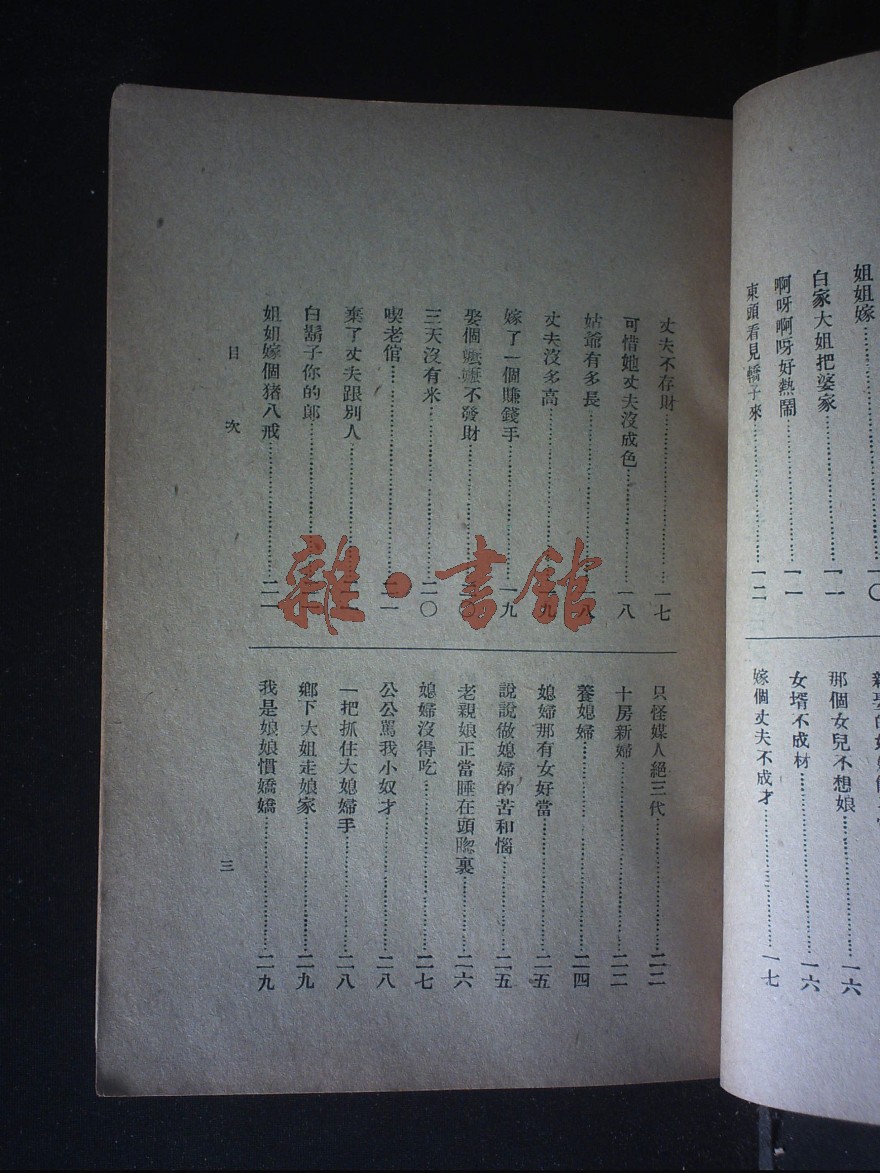 姐姐嫁……一〇
白家大姐把婆家……一一
啊呀啊呀好熱鬧……一一
東頭看見轎子來……一二
那個女兒不想娘……一六
女壻不成材……一六
嫁個丈夫不成才……一七
丈夫不存財……一七
可惜她丈夫沒成色……一八
姑爺有多長……一八
丈夫沒多高……一九
嫁了一個賺錢手……一九
娶個嬷嬷不發財……二〇
三天沒有米……二〇
喫老倌……二一
棄了丈夫跟別人……
白鬍子你的郞……
姐姐嫁個猪八戒……二一
只怪媒人絕三代……二二
十房新婦……二二
養媳婦……二四
媳婦那有女好當……二五
說說做媳婦的苦和惱……二五
老親娘正當睡在頭牕裏……二六
媳婦沒得吃……二七
公公駡我小奴才……二八
一把抓住大媳婦手……二八
鄉下大姐走娘家……二九
我是娘娘慣嬌嬌……二九
目次
三
雜·書館